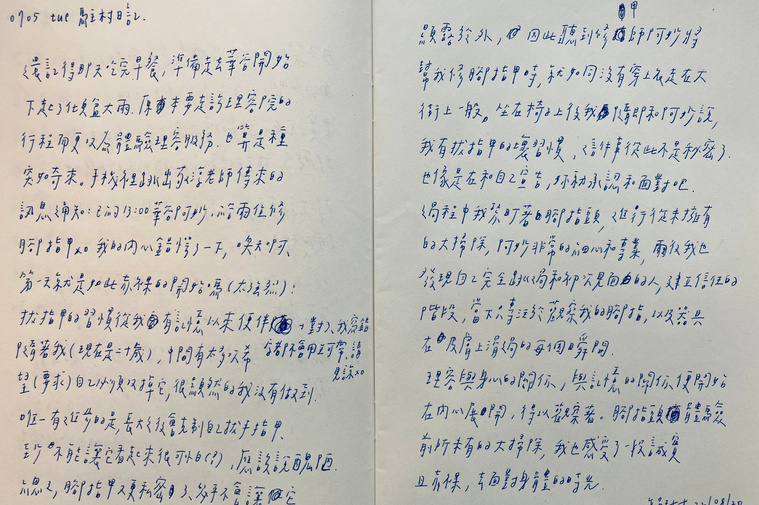 0705 tue 駐村日記.
還記得那天吃完早餐,準備走去華谷開始
下起了傾盆大雨。原本要走訪理容院的
行程而更改為體驗理容服務.也算是種
突如奇來。手機裡跳出 老師傳來的
訊息通知:已約13:00華谷阿妙,洽兩位修
腳指甲xo 我的內心錯愕了一下,喚天啊、
第一天就是如此赤裸的開始嗎(太強烈):
拔指甲的習慣從我有記憶以來便伴
隨著我(現在是二十歲),中間有太多次希
望(要求)自己必須改掉它,很顯然的我沒有做到.
唯一有進步的是,長大後會克制自己拔手指甲、
至少不能讓它看起來很可怕(?),應該說醜陋.
總之,腳指甲又更私密了、幾乎不會讓它
+對了、我穿鞋
都不會用正可常、請
見諒xo
甲
顯露於外,因此聽到修師阿妙將
幫我修腳指甲時,就如同沒有穿上衣走在大
街上一般。坐在椅子上後我隨即和阿妙說,
我有拔指甲的壞習慣,這件事從此不是秘密了.
也像是在和自己宣告,你勒承認和面對吧.
過程中我緊盯著腳指頭,進行從未擁有
的大掃除,阿妙非常的細心和專業,爾後我也
發現自己完全跳過和初次見面的人,建立信任的
階段,當下只專注於觀察我的腳指,以及器具
在皮膚上滑過的每個瞬間.
理容與身心的關係,與記憶的關係便開始
在內心展開,得以觀察著。腳指頭體驗
前所未有的大掃除,我也感受了一段誠實
且赤裸,去面對身體的時光.